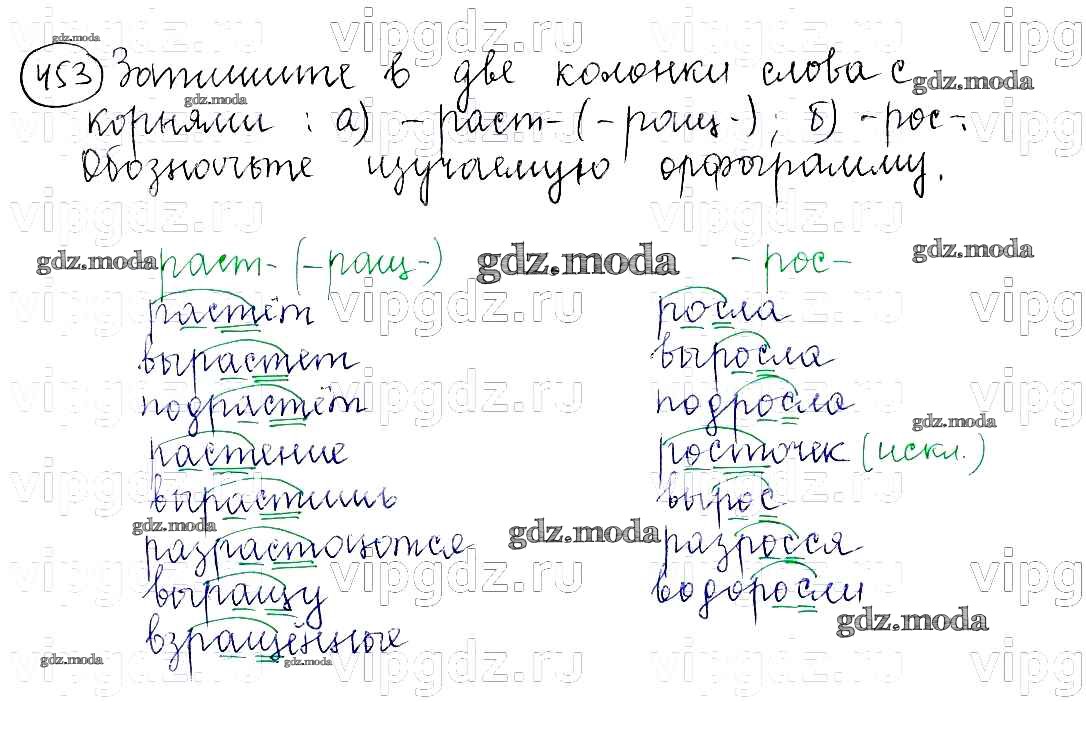 453 Запишите в две колонки слова с
корнями: а) -раст- (-ращ-); б) -рос-.
Обозначьте изучаемую орфограмму.
-раст- (-ращ-) -рос-
растёт росла
вырастет выросла
подрастёт подросла
растение росточек (искл.)
вырастишь вырос
разрастаются разросся
выращу водоросли
взращённые
vipgdz.ru
gdz.moda